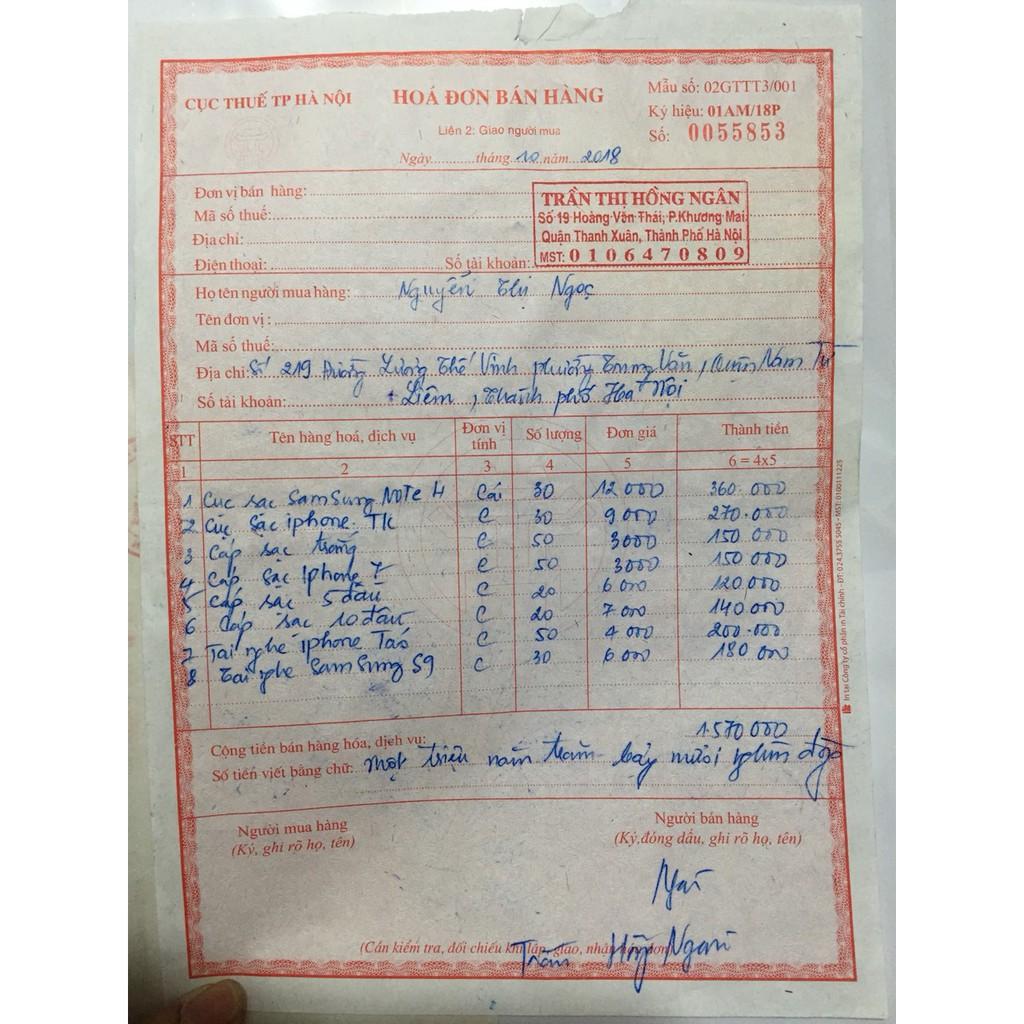 CỤC THUẾ TP HÀ NỘI
HOÁ ĐƠN BÁN HÀNG
Liên 2: Giao người mua
Ngày.........tháng.10.năm...2018
Mẫu số: 02GTTT3/001
Ký hiệu: 01AM/18P
Số: 0055853
Đơn vị bán hàng:
Mã số thuế:
Địa chỉ:
Điện thoại: Số tài khoản:
TRẦN THỊ HỒNG NGÂN
Số 19 Hoàng Văn Thái, P.Khương Mai
Quận Thanh Xuân, Thành Phố Hà Nội
MST: 0106470809
Họ tên người mua hàng: Nguyễn Thị Ngọc
Tên đơn vị:
Mã số thuế:
Địa chỉ: Số 219 Đường Lương Thế Vinh phường Trung Văn, Quận Nam Từ
Số tài khoản: Liêm, Thành phố Hà Nội
STT Tên hàng hoá, dịch vụ Đơn vị tính Số lượng Đơn giá Thành tiền
1 2 3 4 5 6 = 4x5
1 Cục sạc SamSung Note 4 Cái 30 12000 360.000
2 Cục sạc iphone TK C 30 9000 270.000
3 Cáp sạc trắng C 50 3000 150000
4 Cáp sạc Iphone 7 C 50 3000 150000
5 Cáp sạc 5 đầu C 20 6000 120000
6 Cáp sạc 10 đầu C 20 7000 140000
7 Tai nghe iphone Táo C 50 4000 200.000
8 Tai nghe SamSung S9 C 30 6000 180000
Cộng tiền bán hàng hóa, dịch vụ: 1.570000
Số tiền viết bằng chữ: Một triệu năm trăm bảy mươi nghìn đồng
Người mua hàng
(Ký, ghi rõ họ, tên)
Người bán hàng
(Ký,đóng dấu, ghi rõ họ, tên)
Trần Hồng Ngân
(Cần kiểm tra, đối chiếu khi lập, giao, nhận hóa đơn)
In tại Công ty cổ phần in Tài chính - ĐT: 024.3755 5045 - MST: 0100111225